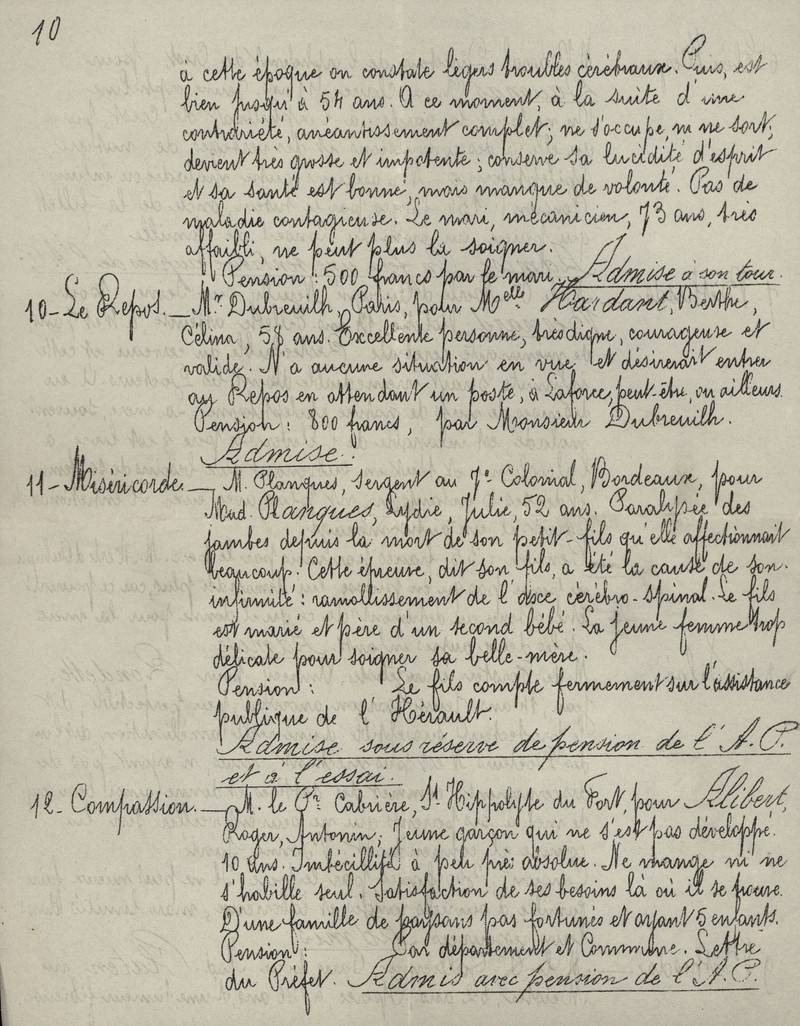 10
à cette époque on constate légers troubles cérébraux. Puis, est
bien jusqu'à 54 ans. A ce moment, à la suite d'une
contrariété, anéantissement complet; ne s'occupe, ni ne sort;
devient très grosse et impotente; conserve sa lucidité d'esprit
et sa santé est bonne, mais manque de volonté. Pas de
maladie contagieuse. Le mari, mécanicien, 73 ans, très
affaibli, ne peut plus la soigner.
Pension: 500 francs par le mari. Admise à son tour.
10- Le Repos. — Mr. Dubreuilh, Paris, pour Melle Hardant, Berthe,
Célina, 58 ans. Excellente personne, très digne, courageuse et
valide. N'a aucune situation en vue et désirerait entrer
au Repos en attendant un poste, à Laforce, peut-être, ou ailleurs.
Pension: 800 francs, par Monsieur Dubreuilh.
Admise.
11- Miséricorde. — M. Planques, Sergent au 7e Colonial, Bordeaux, pour
Mad. Planques, Lydie, Julie, 52 ans. Paralysée des
jambes depuis la mort de son petit-fils qu'elle affectionnait
beaucoup. Cette épreuve, dit son fils, a été la cause de son
infirmité: ramollissement de l'axe cérébro-spinal. Le fils
est marié et père d'un second bébé. La jeune femme trop
délicate pour soigner sa belle-mère.
Pension: Le fils compte fermement sur l'assistance
publique de l'Hérault.
Admise sous réserve de pension de l'A.P.
et à l'essai.
12- Compassion. — M. le Pr. Cabrière, St Hippolyte du Fort, pour Alibert,
Roger, Antonin; Jeune garçon qui ne s'est pas développé.
10 ans. Imbécillité à peu près absolue. Ne mange ni ne
s'habille seul. Satisfaction de ses besoins là où il se trouve.
D'une famille de paysans pas fortunés et ayant 5 enfants.
Pension: Par département et Commune. Lettre
du Préfet. Admis avec pension de l'A.P.